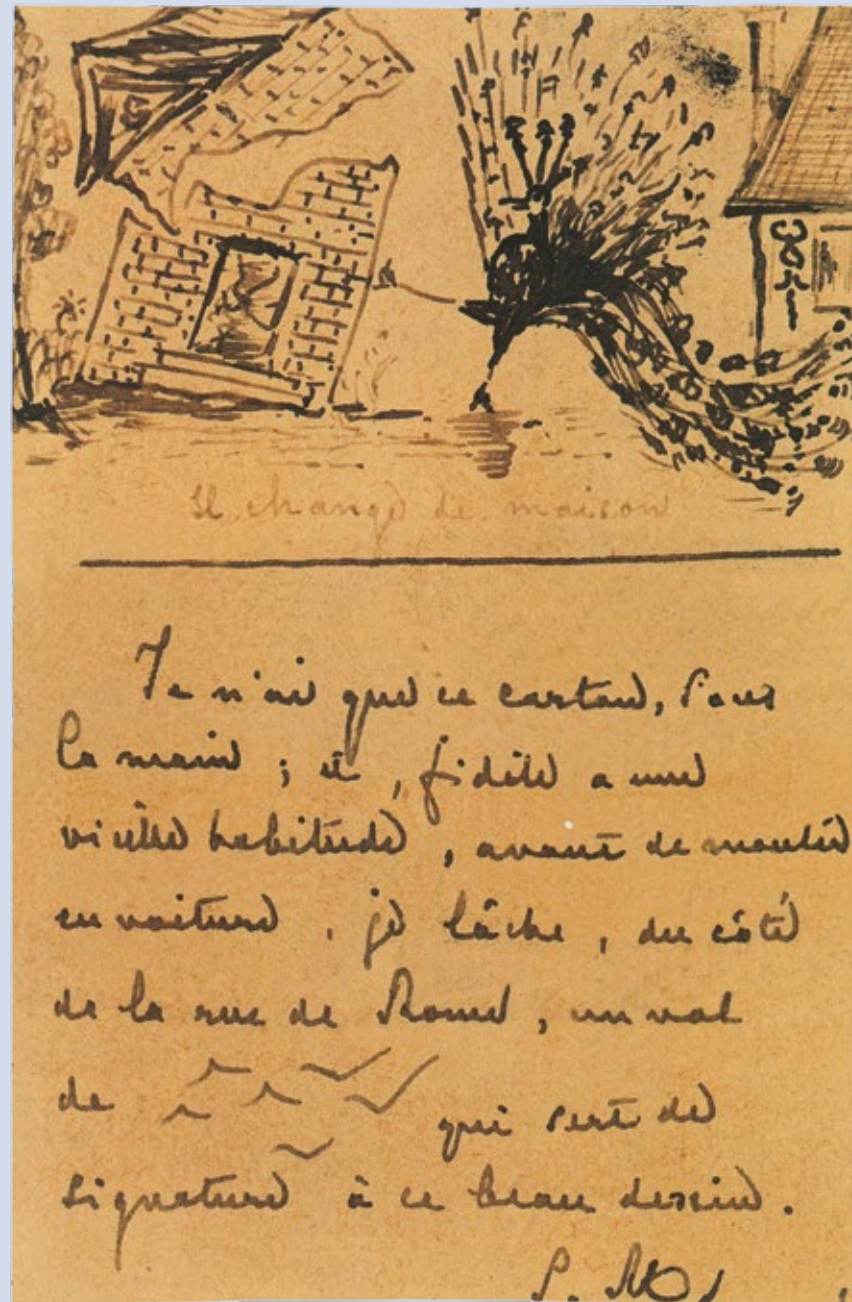 Il change de maison
Je n'ai que ce carton, sous
la main ; et, fidèle a une
vieille habitude, avant de monter
en voiture, je lâche, du côté
de la rue de Rome, un vol
de
qui sert de
signature à ce beau dessin.
S. M.